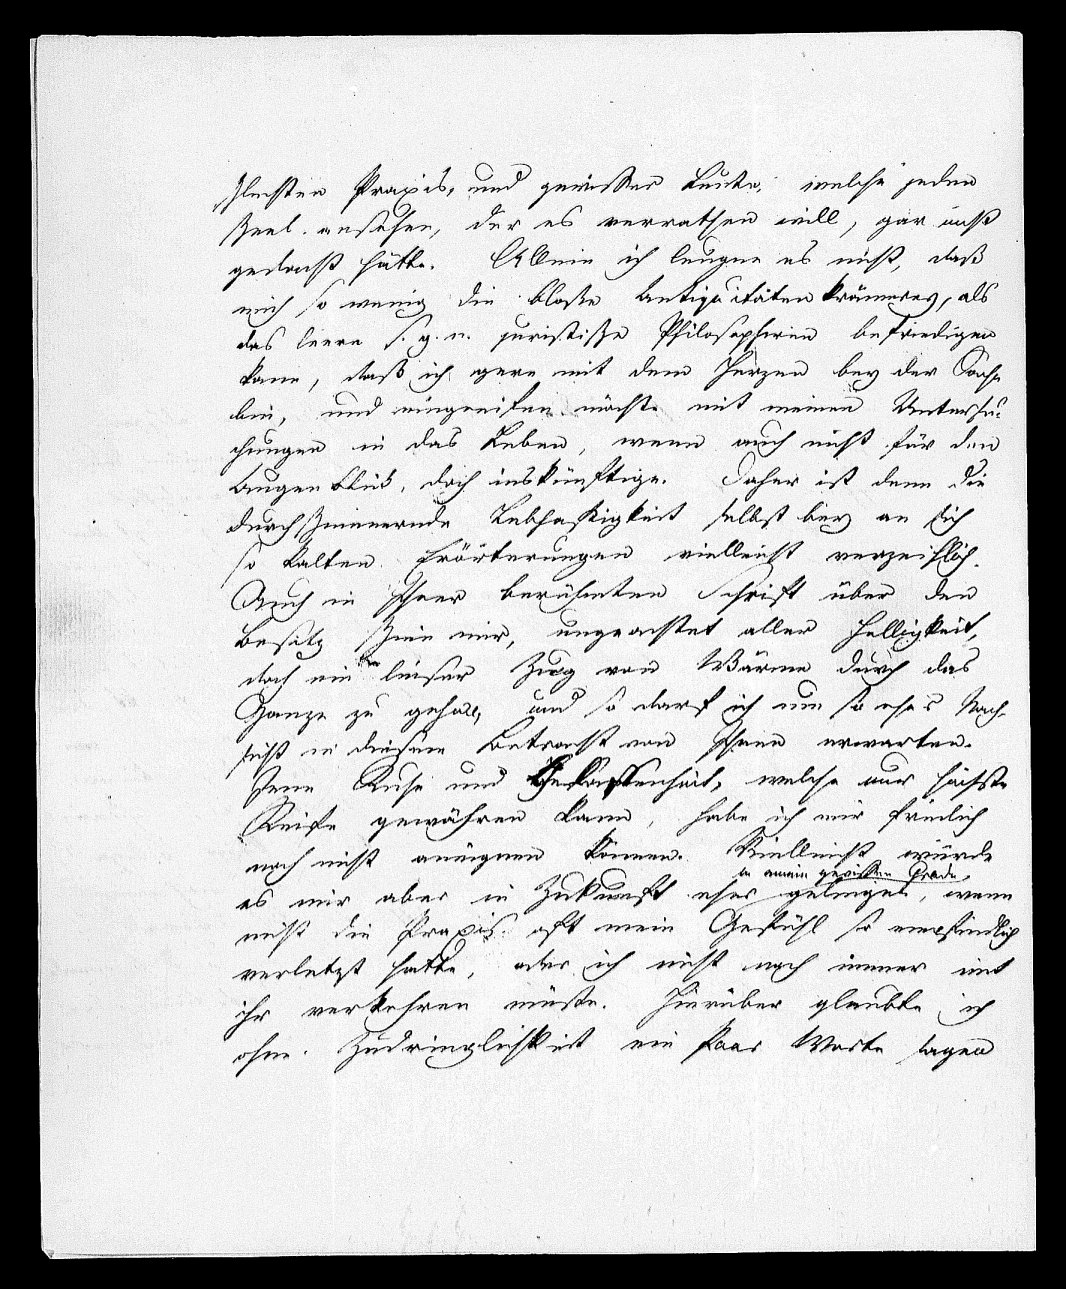 schlechten Praxis, und gewisser Leute, welche jeden
scheel ansehen, der es verrathen will, gar nicht
gedacht hätte. Allein ich leugne es nicht, daß
mich so wenig die bloße Antiquitätenkrämerey, als
das leere s. g. n. juristische Philosophiren befriedigen
kann, daß ich gern mit dem Herzen bey der Sache
bin, und eingreifen möchte mit meinen Untersu-
chungen in das Leben, wenn auch nicht für den
Augenblick, doch inskünftige. Daher ist denn die
durchschimmernde Lebhaftigkeit selbst bey an sich
so kalten Erörterungen vielleicht verzeihlich.
Auch in Ihrer berühmten Schrift über den
Besitz schien mir, ungeachtet aller Helligkeit,
doch ein leiser Zug von Wärme durch das
Ganze zu gehen, und so darf ich um so eher Nach-
sicht in diesem Betracht von Ihnen erwarten.
Jene Ruhe und Gelassenheit, welche nur höchste
Reife gewähren kann, habe ich mir freilich
noch nicht aneignen können. Vielleicht würde
es mir aber in Zukunft eher in einem gewissen Grade gelingen, wenn
nicht die Praxis oft mein Gefühl so empfindlich
verletzt hätte, oder ich nicht noch immer mit
ihr verkehren müßte. Hierüber glaubte ich
ohne Zudringlichkeit ein Paar Worte sagen